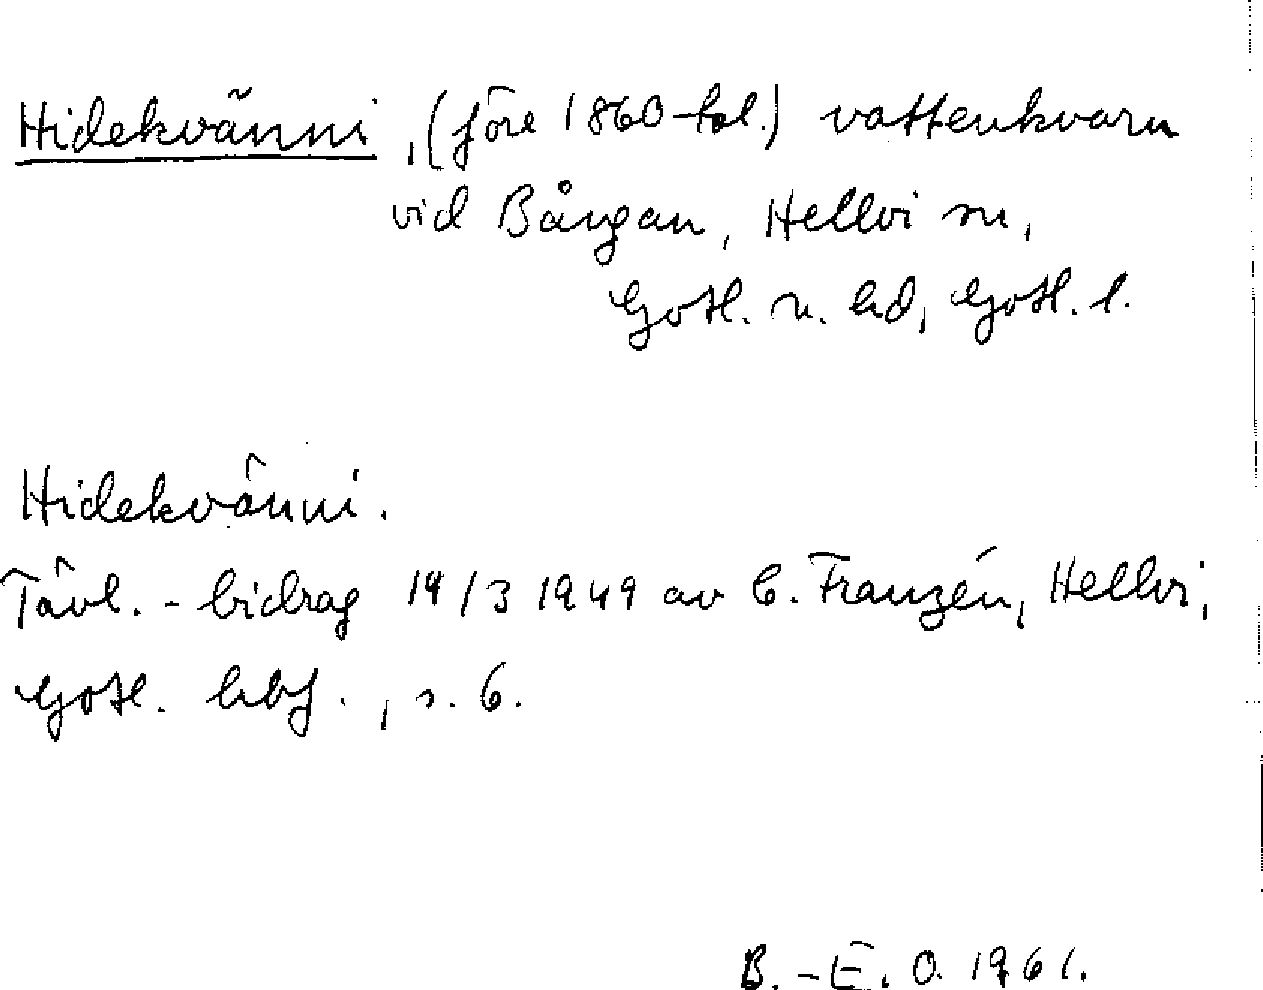 Hidekvänni, (före 1860-tal.) vattenkvarn
vid Bångan, Hellvi sn,
Gotl. n. hd, Gotl. l.
Hidekvänni.
Tävl.-bidrag 14/3 1949 av C. Franzén, Hellvi,
Gotl. hbf., s. 6.
B.-E. O. 1961.